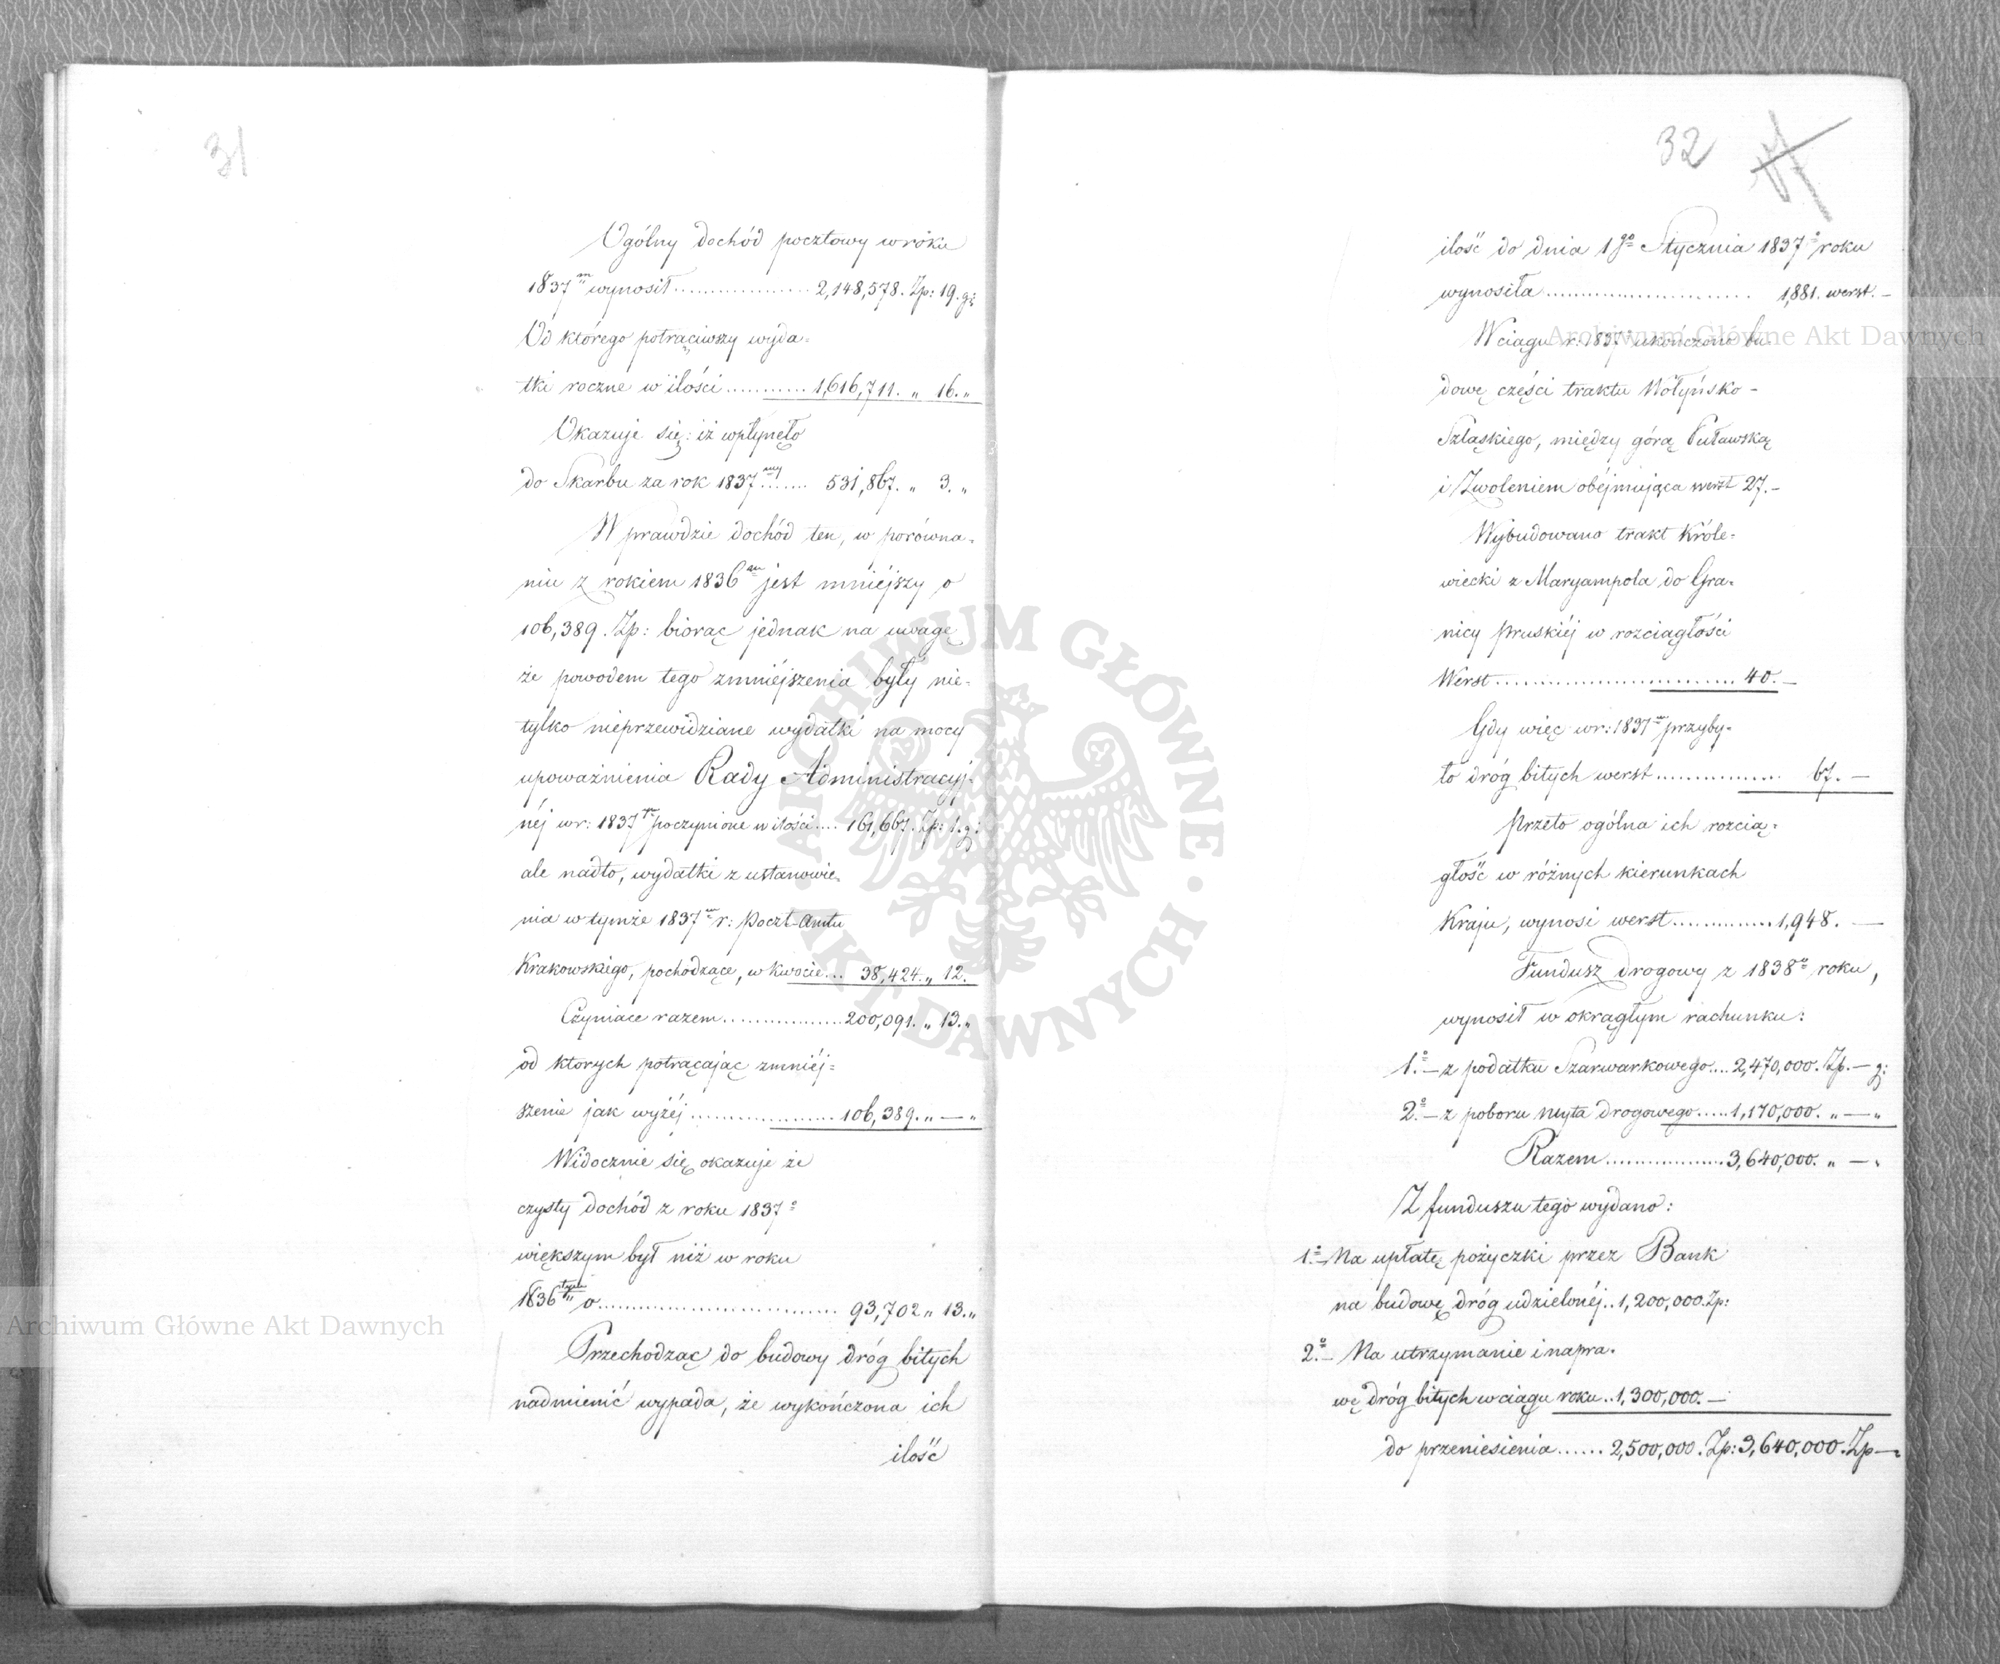 31
Ogólny dochód pocztowy w roku
1837m wynosił.................. 2,148,578. Zp: 19. g:
Od którego potrąciwszy wyda=
tki roczne w ilości ........... 1,616,711. „ 16. „
Okazuje się: iż wpłynęło
do Skarbu za rok 1837my ....... 531,867. „ 3. „
Wprawdzie dochód ten, w porówna=
niu z rokiem 1836 jest mniéjszy o
106,389. Zp: biorąc jednak na uwagę
że powodem tego zmniéjszenia były nie=
tylko nieprzewidziane wydatki na mocy
upoważnienia Rady Administracyj=
néj w r: 1837m poczynione w ilości.... 161,667. Zp: 1. g:
ale nadto, wydatki z ustanowie=
nia w tymże 1837m r: Poczt-Amtu
Krakowskiego, pochodzące, w kwocie... 38,424. „ 12.
Czyniące razem ................. 200,091. „ 13. „
od ktorych potrącając zmniéj=
szenie jak wyżéj ................... 106,389. „ — „
Widocznie się okazuje że
czysty dochód z roku 1837o
większym był niż w roku
1836 o .............................. 93,702 „ 13. „
Przechodząc do budowy dróg bitych
nadmienić wypada, że wykończona ich
ilość
32
ilość do dnia 1go Stycznia 1837o roku
wynosiła ............................ 1,881. werst. —
W ciągu r: 1837 ukończono bu=
dowę części traktu Wołyńsko —
Szląskiego, między górą Puławską
i Zwoleniem obéjmująca werst 27. —
Wybudowano trakt Króle=
wiecki z Maryampola do Gra=
nicy Pruskiéj w rozciągłości
Werst ................................ 40. —
Gdy więc w r: 1837m przyby=
ło dróg bitych werst ................. 67. —
Przeto ogólna ich rozcią=
głość w różnych kierunkach
Kraju, wynosi werst ............. 1,948. —
Fundusz drogowy z 1838o roku,
wynosił w okrągłym rachunku:
1.o — z podatku Szarwarkowego .... 2,470,000. Zp. — g:
2.o — z poboru myta drogowego ..... 1,170,000. „ — „
Razem ................. 3,640,000. „ — „
Z funduszu tego wydano:
1.o — Na upłatę pożyczki przez Bank
na budowę dróg udzielonéj .. 1,200,000. Zp:
2.o — Na utrzymanie i napra=
wę dróg bitych w ciągu roku .. 1,300,000. —
do przeniesienia ...... 2,500,000. Zp: 3,640,000. Zp —
ARCHIWUM GŁÓWNE · AKT DAWNYCH ·
Archiwum Główne Akt Dawnych
Archiwum Główne Akt Dawnych